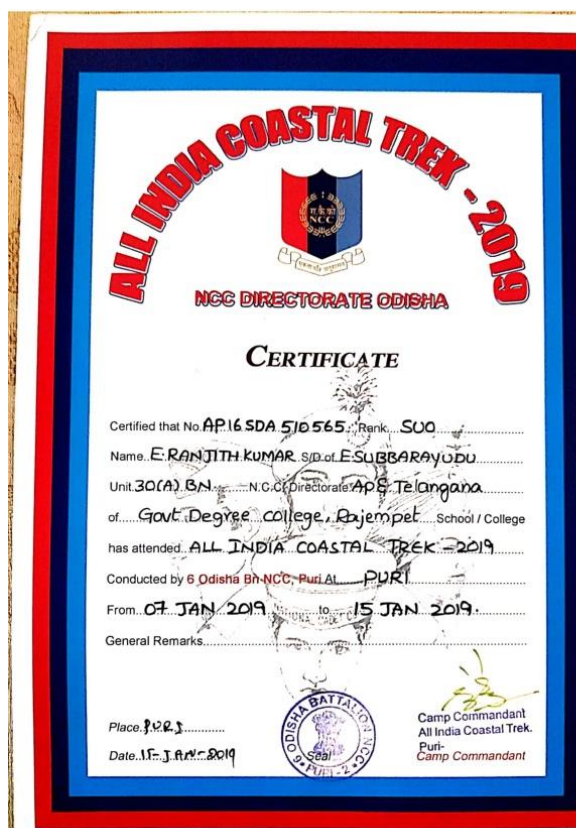 ALL INDIA COASTAL TREK - 2019
NCC
एकता और अनुशासन
NCC DIRECTORATE ODISHA
CERTIFICATE
Certified that No. AP16 SDA 510565. Rank SUO
Name E. RANJITH KUMAR S/D of E SUBBARAYUDU
Unit 30(A) BN N.C.C. Directorate AP & Telangana
of Govt Degree college, Rajempet School / College
has attended ALL INDIA COASTAL TREK - 2019
Conducted by 6 Odisha Bn NCC, Puri At PURI
From 07 JAN 2019 to 15 JAN 2019.
General Remarks
Place PURI
Date 15-JAN-2019
Seal
6 ODISHA BATTALION NCC
PURI-2
Camp Commandant
All India Coastal Trek.
Puri-
Camp Commandant